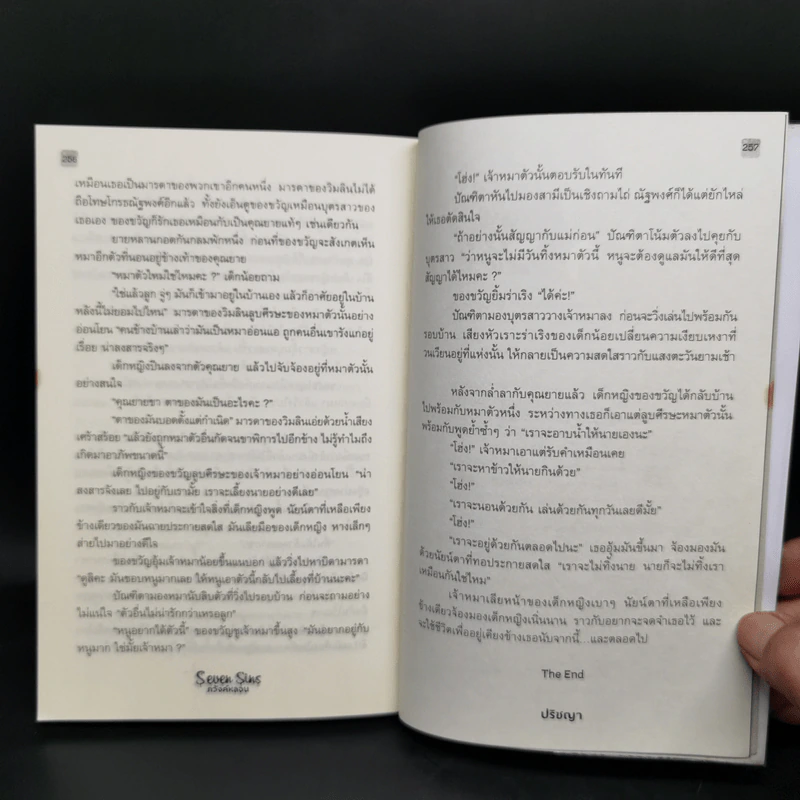 256
เหมือนเธอเป็นมารดาของพวกเขาอีกคนหนึ่ง มารดาของวิมลินไม่ได้
ถือโทษโกรธณัฐพงศ์อีกแล้ว ทั้งยังเอ็นดูของขวัญเหมือนบุตรสาวของ
เธอเอง ของขวัญก็รักเธอเหมือนกับเป็นคุณยายแท้ๆ เช่นเดียวกัน
ยายหลานกอดกันกลมพักหนึ่ง ก่อนที่ของขวัญจะสังเกตเห็น
หมาอีกตัวที่นอนอยู่ข้างเท้าของคุณยาย
"หมาตัวใหม่ใช่ไหมคะ ?" เด็กน้อยถาม
"ใช่แล้วลูก จู่ๆ มันก็เข้ามาอยู่ในบ้านเอง แล้วก็อาศัยอยู่ในบ้าน
หลังนี้ไม่ยอมไปไหน" มารดาของวิมลินลูบศีรษะของหมาตัวนั้นอย่าง
อ่อนโยน "คนข้างบ้านเล่าว่ามันเป็นหมาอ่อนแอ ถูกคนอื่นเขารังแกอยู่
เรื่อย น่าสงสารจริงๆ"
เด็กหญิงปีนลงจากตัวคุณยาย แล้วไปจับจ้องอยู่ที่หมาตัวนั้น
อย่างสนใจ
"คุณยายขา ตาของมันเป็นอะไรคะ ?"
"ตาของมันบอดตั้งแต่กำเนิด" มารดาของวิมลินเอ่ยด้วยน้ำเสียง
เศร้าสร้อย "แล้วยังถูกหมาตัวอื่นกัดจนขาพิการไปอีกข้าง ไม่รู้ทำไมถึง
เกิดมาอาภัพขนาดนี้"
เด็กหญิงของขวัญลูบศีรษะของเจ้าหมาอย่างอ่อนโยน "น่า
สงสารจังเลย ไปอยู่กับเรามั้ย เราจะเลี้ยงนายอย่างดีเลย"
ราวกับเจ้าหมาจะเข้าใจสิ่งที่เด็กหญิงพูด นัยน์ตาที่เหลือเพียง
ข้างเดียวของมันฉายประกายสดใส มันเลียมือของเด็กหญิง หางเล็กๆ
ส่ายไปมาอย่างดีใจ
ของขวัญอุ้มเจ้าหมาน้อยขึ้นแนบอก แล้ววิ่งไปหาบิดามารดา
"ดูสิคะ มันชอบหนูมากเลย ให้หนูเอาตัวนี้กลับไปเลี้ยงที่บ้านนะคะ"
บัณฑิตามองหมานับสิบตัวที่วิ่งไปรอบบ้าน ก่อนจะถามอย่าง
ไม่แน่ใจ "ตัวอื่นไม่น่ารักกว่าเหรอลูก"
"หนูอยากได้ตัวนี้" ของขวัญชูเจ้าหมาขึ้นสูง "มันอยากอยู่กับ
หนูมาก ใช่มั้ยเจ้าหมา ?"
Seven Sins
257
"โฮ่ง!" เจ้าหมาตัวนั้นตอบรับในทันที
บัณฑิตาหันไปมองสามีเป็นเชิงถามไถ่ ณัฐพงศ์ก็ได้แต่ยักไหล่
ให้เธอตัดสินใจ
"ถ้าอย่างนั้นสัญญากับแม่ก่อน" บัณฑิตาโน้มตัวลงไปคุยกับ
บุตรสาว "ว่าหนูจะไม่มีวันทิ้งหมาตัวนี้ หนูจะต้องดูแลมันให้ดีที่สุด
สัญญาได้ไหมคะ ?"
ของขวัญยิ้มร่าเริง "ได้ค่ะ!"
บัณฑิตามองบุตรสาววางเจ้าหมาลง ก่อนจะวิ่งเล่นไปพร้อมกัน
รอบบ้าน เสียงหัวเราะร่าเริงของเด็กน้อยเปลี่ยนความเงียบเหงาที่
วนเวียนอยู่ที่แห่งนั้น ให้กลายเป็นความสดใสราวกับแสงตะวันยามเช้า
หลังจากล่ำลากับคุณยายแล้ว เด็กหญิงของขวัญได้กลับบ้าน
ไปพร้อมกับหมาตัวหนึ่ง ระหว่างทางเธอก็เอาแต่ลูบศีรษะหมาตัวนั้น
พร้อมกับพูดย้ำซ้ำๆ ว่า "เราจะอาบน้ำให้นายเองนะ"
"โฮ่ง!" เจ้าหมาเอาแต่รับคำเหมือนเคย
"เราจะหาข้าวให้นายกินด้วย"
"โฮ่ง!"
"เราจะนอนด้วยกัน เล่นด้วยกันทุกวันเลยดีมั้ย"
"โฮ่ง!"
"เราจะอยู่ด้วยกันตลอดไปนะ" เธออุ้มมันขึ้นมา จ้องมองมัน
ด้วยนัยน์ตาที่ทอประกายสดใส "เราจะไม่ทิ้งนาย นายก็จะไม่ทิ้งเรา
เหมือนกันใช่ไหม"
เจ้าหมาเลียหน้าของเด็กหญิงเบาๆ นัยน์ตาที่เหลือเพียง
ข้างเดียวจ้องมองเด็กหญิงเนิ่นนาน ราวกับอยากจะจดจำเธอไว้ และ
จะใช้ชีวิตเพื่ออยู่เคียงข้างเธอนับจากนี้...และตลอดไป
The End
ปริชญา